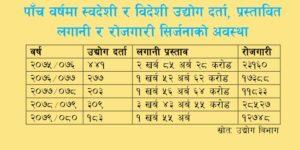 पाँच वर्षमा स्वदेशी र विदेशी उद्योग दर्ता, प्रस्तावित
लगानी र रोजगारी सिर्जनाको अवस्था
वर्ष उद्योग दर्ता लगानी प्रस्ताव रोजगारी
२०७५/०७६ ४४१ २ खर्ब ८५ अर्ब २८ करोड २३१६०
२०७६/०७७ २७७ १ खर्ब ५२ अर्ब ६२ करोड १७३८८
२०७७/०७८ २०९ १ खर्ब ५६ अर्ब ५४ करोड ११८३३
२०७८/०७९ ३०९ १ खर्ब ४३ अर्ब ५५ करोड २८५२७
२०७९/०८० १८३ १ खर्ब ५५ अर्ब १२७४८
स्रोतः उद्योग विभाग